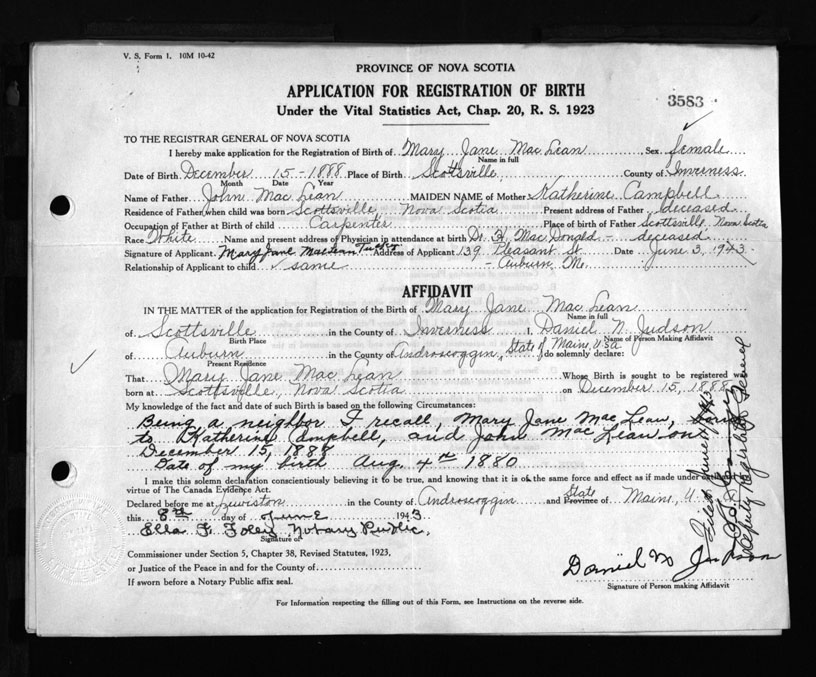 V. S. Form 1. 10M 10-42
PROVINCE OF NOVA SCOTIA
APPLICATION FOR REGISTRATION OF BIRTH
3583
Under the Vital Statistics Act, Chap. 20, R. S. 1923
TO THE REGISTRAR GENERAL OF NOVA SCOTIA
I hereby make application for the Registration of Birth of Mary Jane Mac Lean Sex female
Name in full
Date of Birth December 15-1888 Place of Birth Scottsville County of Inverness
Month Date Year
Name of Father John Mac Lean MAIDEN NAME of Mother Katherine Campbell
Residence of Father when child was born Scottsville, Nova Scotia Present address of Father deceased
Occupation of Father at Birth of child Carpenter Place of birth of Father Scottsville Nova Scotia
Race White Name and present address of Physician in attendance at birth Dr. H. Mac Donald - deceased
Signature of Applicant Mary Jane MacLean Tucker Address of Applicant 139 Pleasant St. Date June 3, 1943
Relationship of Applicant to child same Auburn, Me.
AFFIDAVIT
IN THE MATTER of the application for Registration of the Birth of Mary Jane Mac Lean
Name in full
of Scottsville in the County of Inverness I, Daniel N. Judson
Birth Place Name of Person Making Affidavit
of Auburn in the County of Androscoggin, State of Maine, USA do solemnly declare:
Present Residence
That Mary Jane Mac Lean Whose Birth is sought to be registered was
born at Scottsville, Nova Scotia on December 15, 1888
My knowledge of the fact and date of such Birth is based on the following Circumstances:
Being a neighbor I recall, Mary Jane Mac Lean, born
to Katherine Campbell, and John Mac Lean on
December 15, 1888
Date of my birth Aug. 4th 1880
I make this solemn declaration conscientiously believing it to be true, and knowing that it is of the same force and effect as if made under
virtue of The Canada Evidence Act.
Declared before me at Lewiston in the County of Androscoggin and State Province of Maine, U.
this 8th day of June 1943
Ella F. Foley, Notary Public,
Signature of
Commissioner under Section 5, Chapter 38, Revised Statutes, 1923,
or Justice of the Peace in and for the County of
If sworn before a Notary Public affix seal.
Daniel N Judson
Signature of Person making Affidavit
Deputy Registrar General
For Information respecting the filling out of this Form, see Instructions on the reverse side.